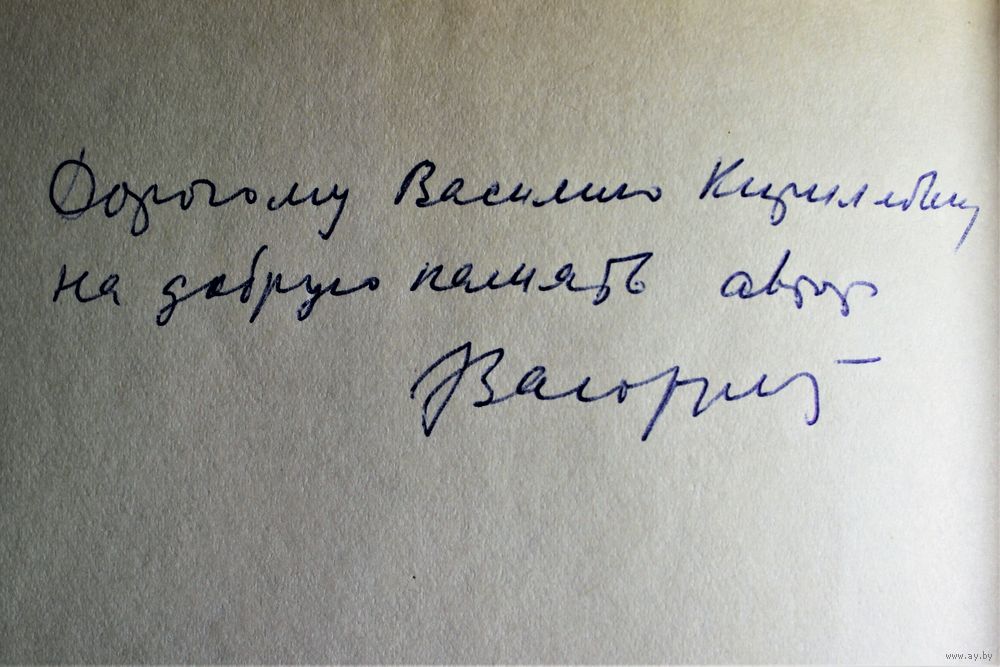 Дорогому Василию Кирилловичу
на добрую память автор
www.ay.by